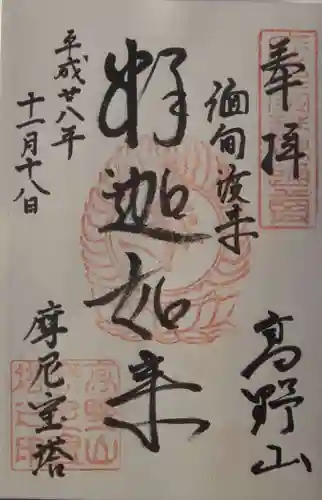 奉拝
高野山
緬甸渡来
釈迦如来
摩尼宝塔
平成廿八年
十一月十八日